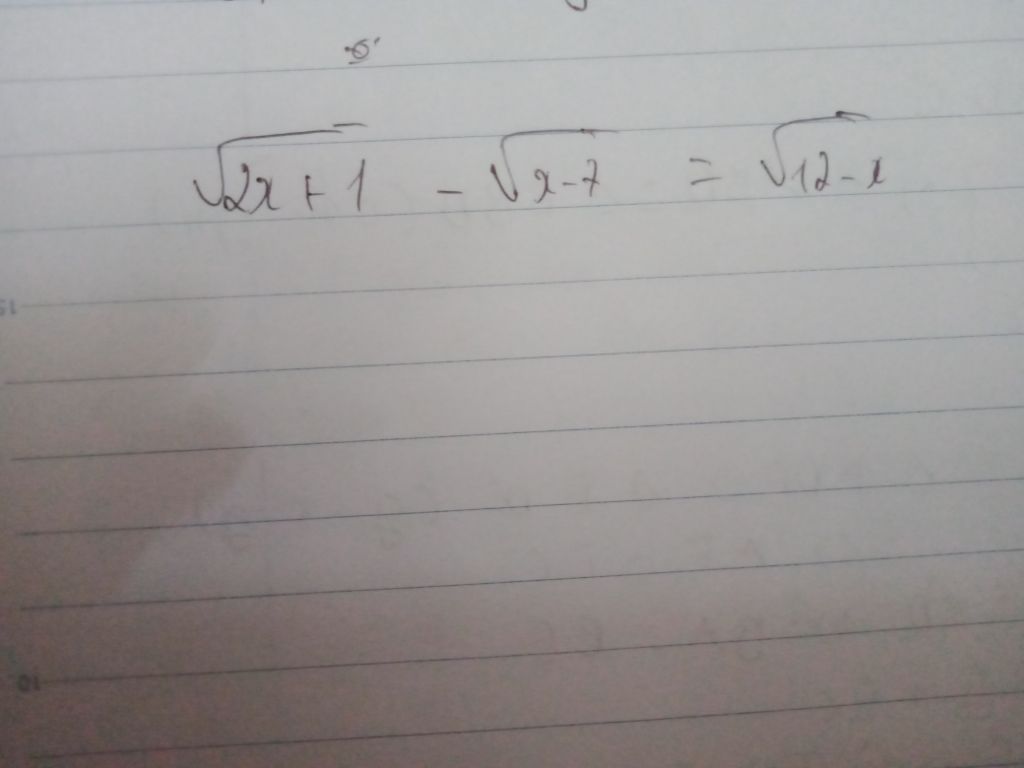 √2x+1 - √x-7 = √12-x